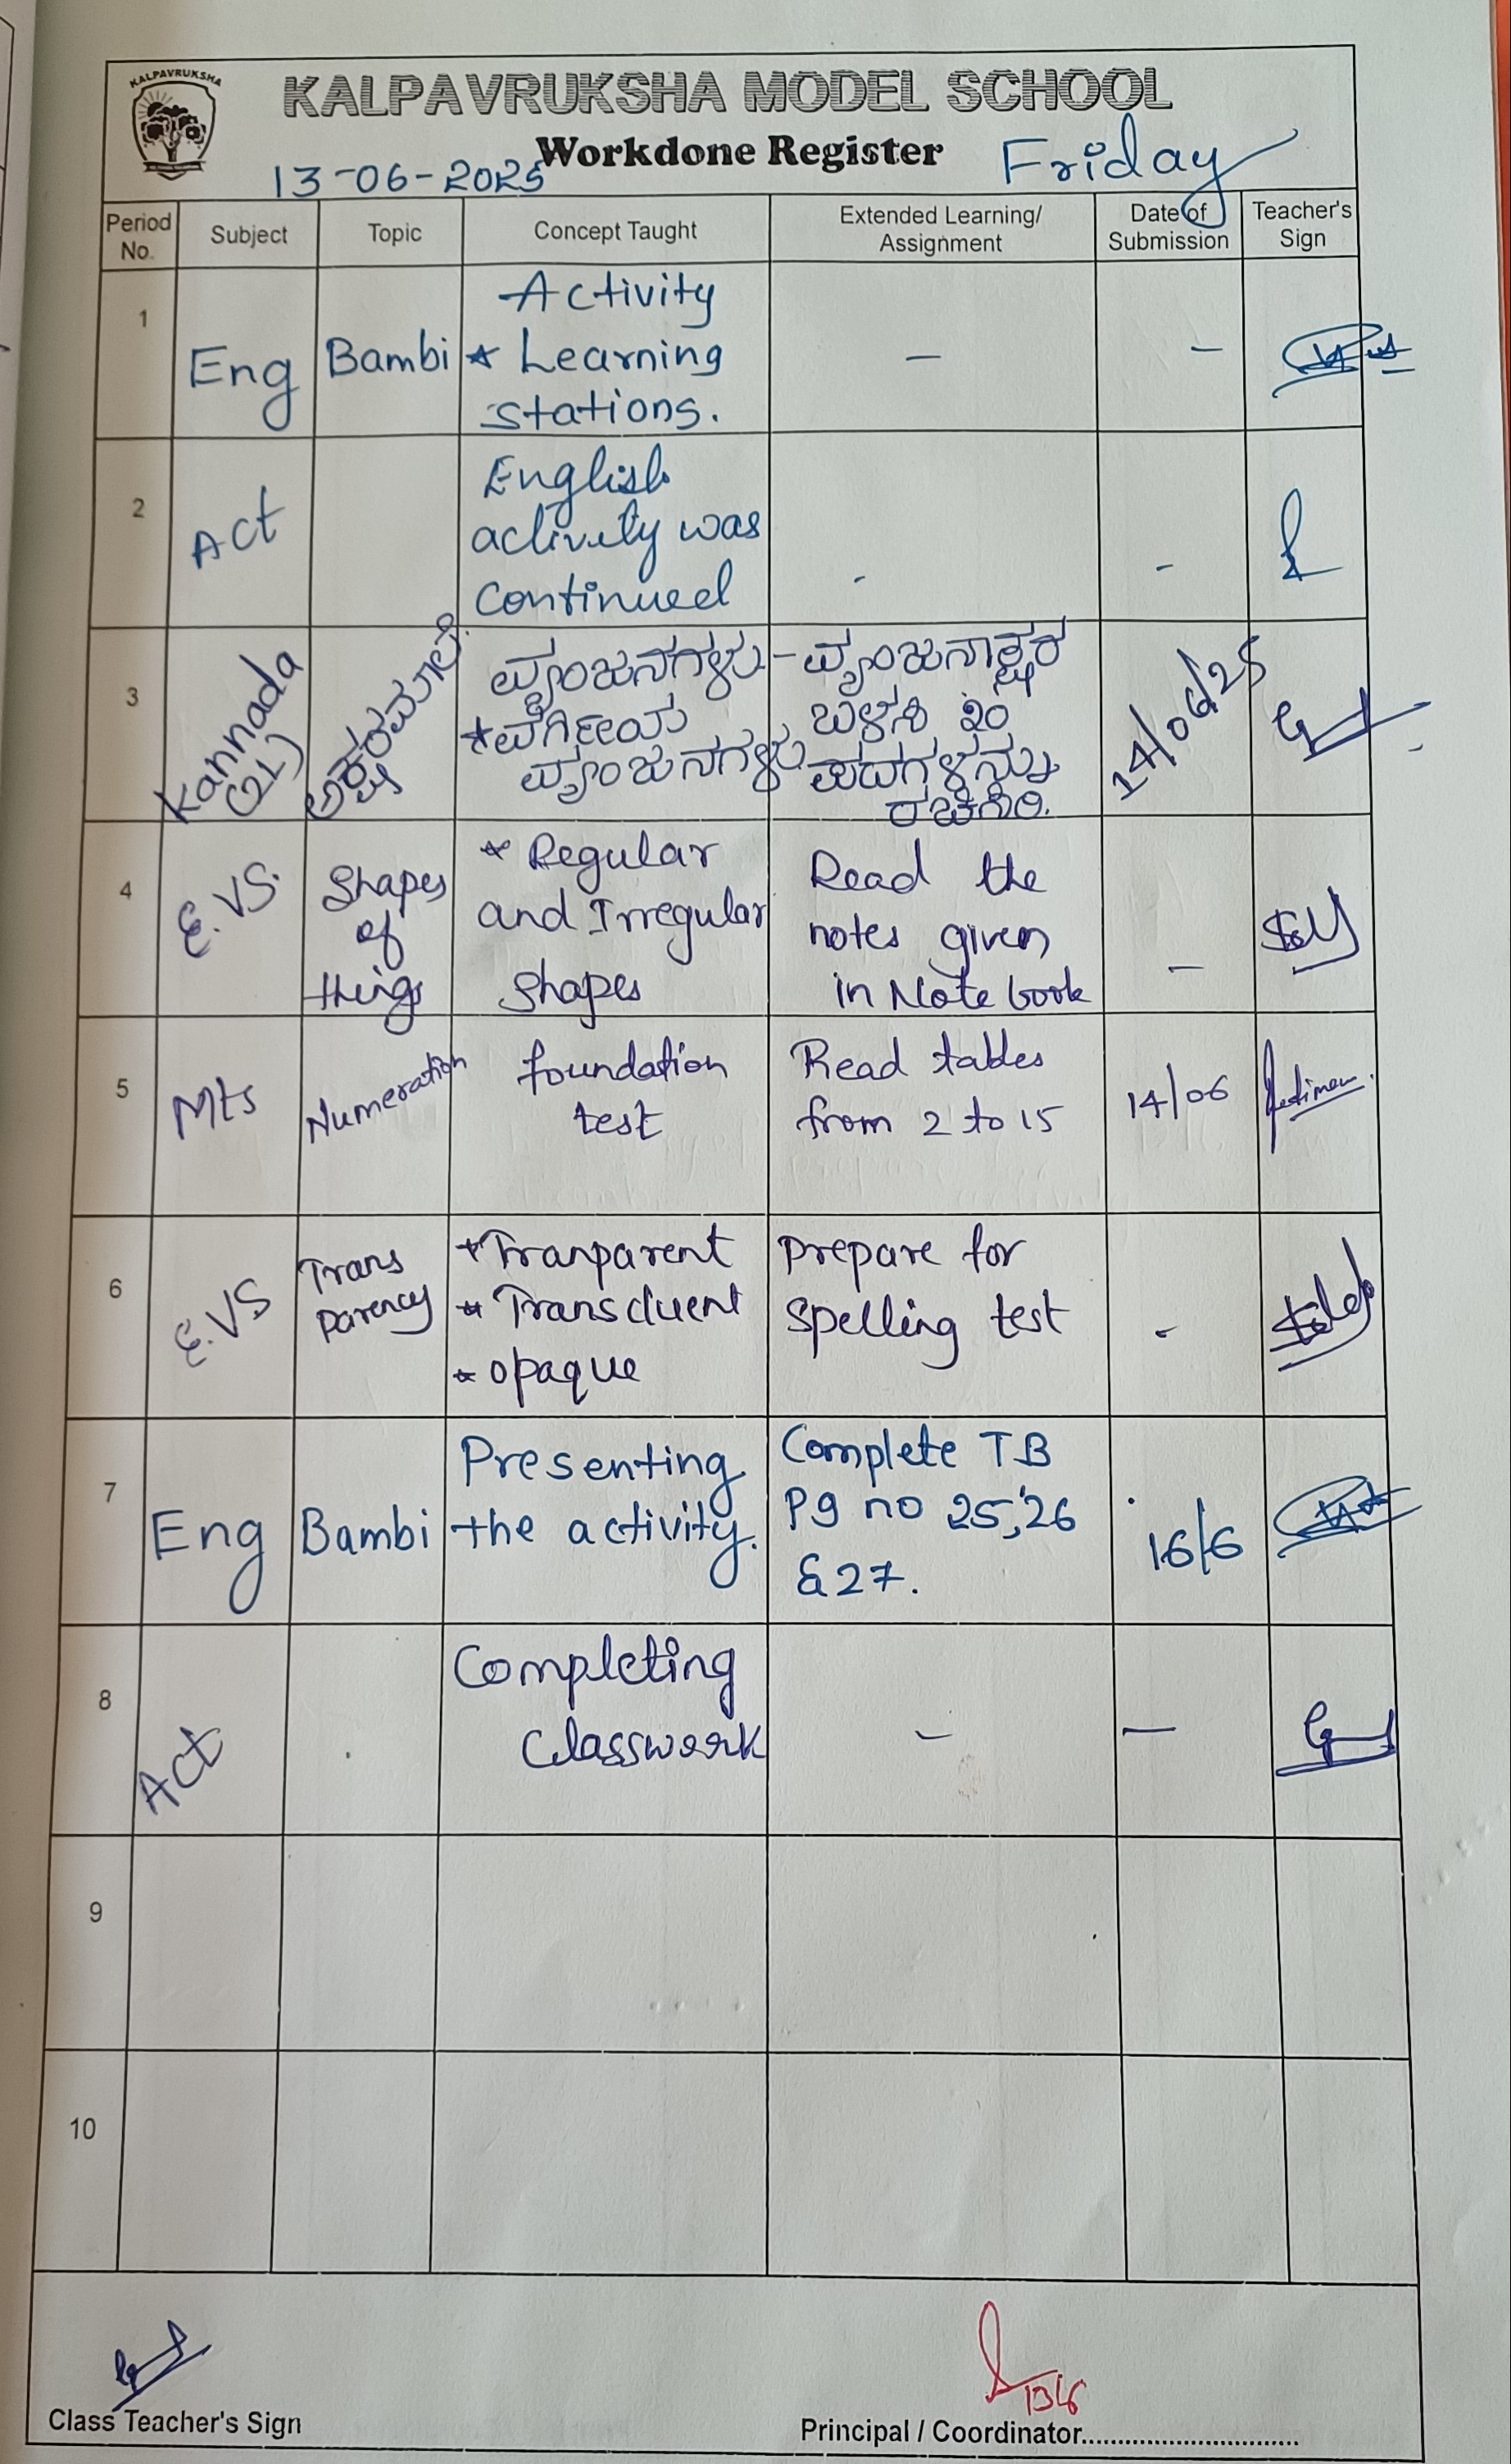 KALPAVRUKSHA
KALPAVRUKSHA MODEL SCHOOL
Workdone Register
13-06-2025
Friday
Period No.
Subject
Topic
Concept Taught
Extended Learning/
Assignment
Date of
Submission
Teacher's
Sign
1
Eng
Bambi
Activity
* Learning
stations.
—
—
2
Act
English
activity was
continued
-
-
3
Kannada
(2L)
ಅಕ್ಷರಮಾಲೆ.
ವ್ಯಂಜನಗಳು
*ವರ್ಗೀಯ
ವ್ಯಂಜನಗಳು
- ವ್ಯಂಜನಾಕ್ಷರ
ಬಳಸಿ ೩೦
ಪದಗಳನ್ನು
ರಚಿಸಿರಿ.
14/06/25
4
E.VS.
Shapes
of
things
* Regular
and Irregular
shapes
Read the
notes given
in Note book
—
5
Mts
Numeration
foundation
test
Read tables
from 2 to 15
14/06
6
E.VS
Trans
parency
*Tranparent
* Transcluent
* opaque
Prepare for
Spelling test
-
7
Eng
Bambi
Presenting
the activity.
Complete TB
Pg no 25, 26
& 27.
16/6
8
Act
Completing
Classwork
—
—
9
10
Class Teacher's Sign
13/6
Principal / Coordinator..............................